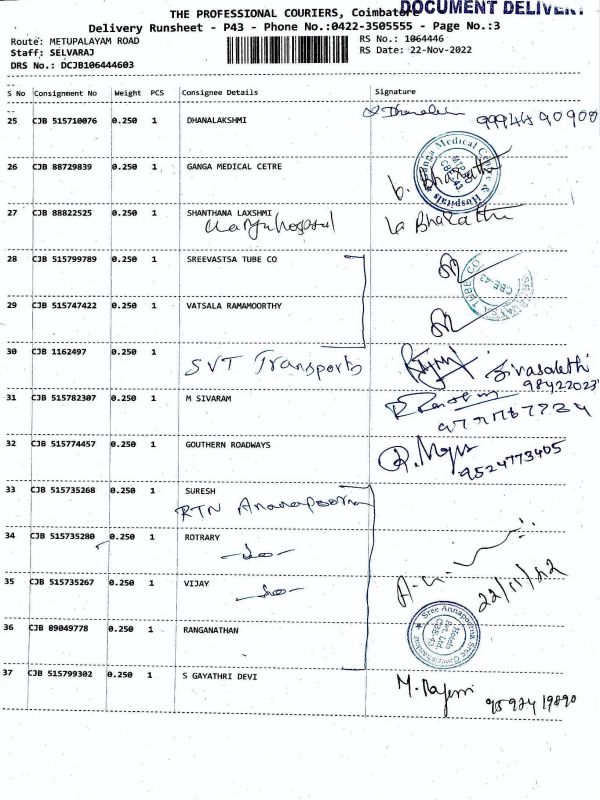 THE PROFESSIONAL COURIERS, Coimbatore
DOCUMENT DELIVERY
Delivery Runsheet - P43 - Phone No.:0422-3505555 - Page No.:3
Route: METUPALAYAM ROAD
RS No.: 1064446
Staff: SELVARAJ
RS Date: 22-Nov-2022
DRS No.: DCJB106444603
S No Consignment No Weight PCS Consignee Details Signature
25 CJB 515710076 0.250 1 DHANALAKSHMI
26 CJB 88729839 0.250 1 GANGA MEDICAL CETRE
b. Bharathi
27 CJB 88822525 0.250 1 SHANTHANA LAXSHMI
Ganga hospital
Bharathi
28 CJB 515799789 0.250 1 SREEVASTSA TUBE CO
29 CJB 515747422 0.250 1 VATSALA RAMAMOORTHY
30 CJB 1162497 0.250 1
SVT Transports
31 CJB 515782307 0.250 1 M SIVARAM
32 CJB 515774457 0.250 1 GOUTHERN ROADWAYS
9524773405
33 CJB 515735268 0.250 1 SURESH
RTN Annapoorna
34 CJB 515735280 0.250 1 ROTRARY
-do-
35 CJB 515735267 0.250 1 VIJAY
-do-
22/11/22
36 CJB 89049778 0.250 1 RANGANATHAN
37 CJB 515799302 0.250 1 S GAYATHRI DEVI